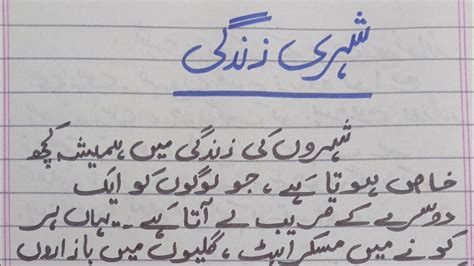 شہری زندگی
شہروں کی زندگی میں ہمیشہ کچھ
خاص ہوتا ہے، جو لوگوں کو ایک
دوسرے کے قریب لے آتا ہے۔۔ یہاں ہر
کونے میں مسکراہٹ، گلیوں میں بازاروں